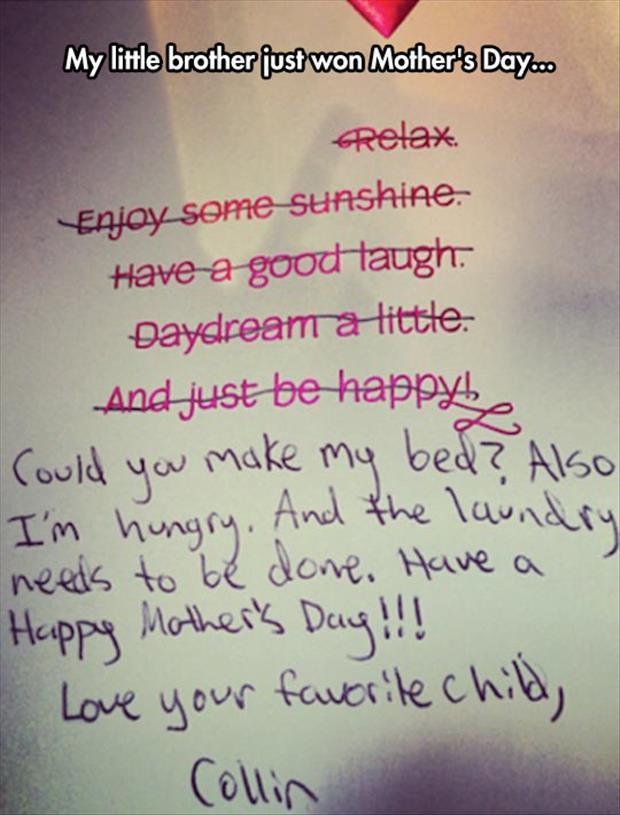 My little brother just won Mother's Day...
Relax.
Enjoy some sunshine.
Have a good laugh.
Daydream a little.
And just be happy!
Could you make my bed? Also
I'm hungry. And the laundry
needs to be done. Have a
Happy Mother's Day!!!
Love your favorite child,
Collin